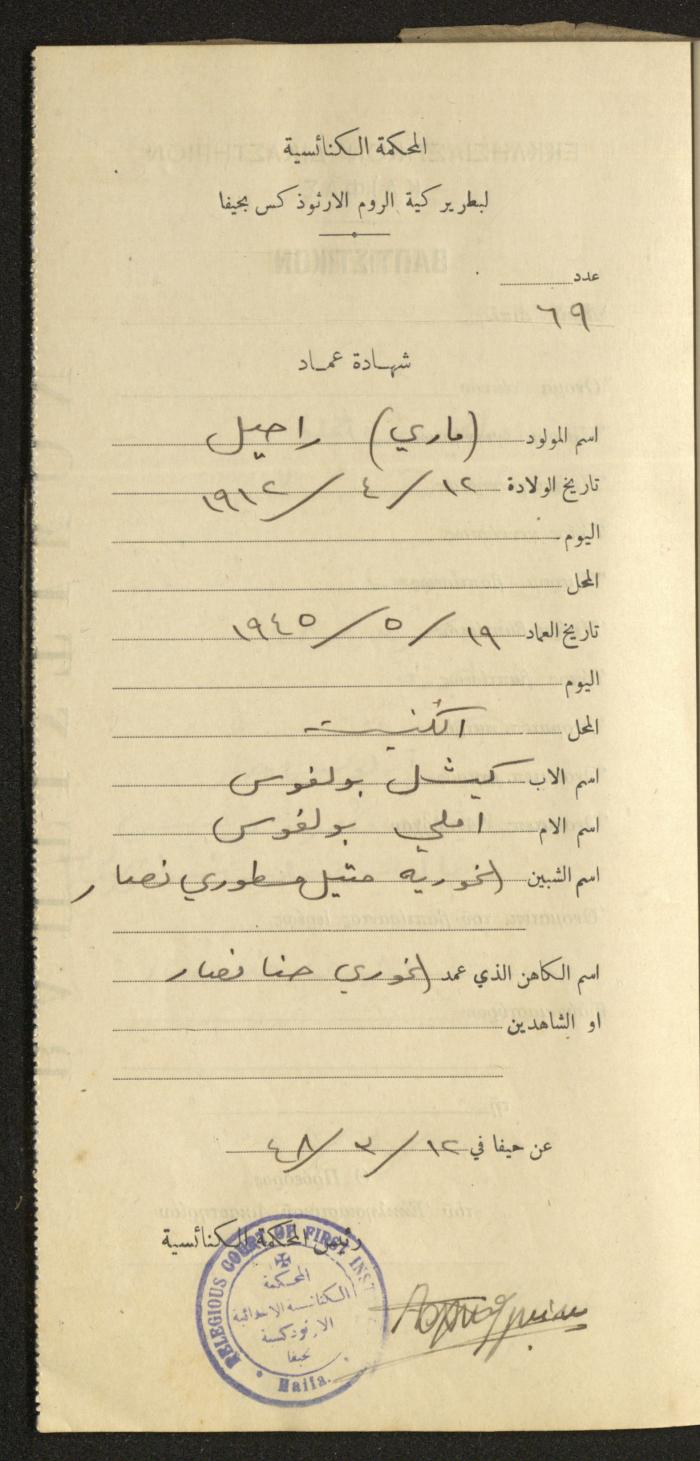 المحكمة الكنائسية
لبطريركية الروم الارثوذكس بحيفا
عدد
٦٩
شهادة عماد
اسم المولود (ماري) راحيل
تاريخ الولادة ١٢/٤/١٩١٢
اليوم
المحل
تاريخ العماد ١٩/٥/١٩٤٥
اليوم
المحل الكنيسة
اسم الاب كيشل بولفوس
اسم الام املي بولفوس
اسم الشبين الخوريه متيل مسطوري نصار
اسم الكاهن الذي عمد الخوري حنا نصار
او الشاهدين
عن حيفا في ١٢/٣/٤٨
رئيس المحكمة الكنائسية
RELEGIOUS COURT OF FIRST INST
المحكمة
الكنائسية الابتدائية
الارثوذكسية
بحيفا
Haifa.